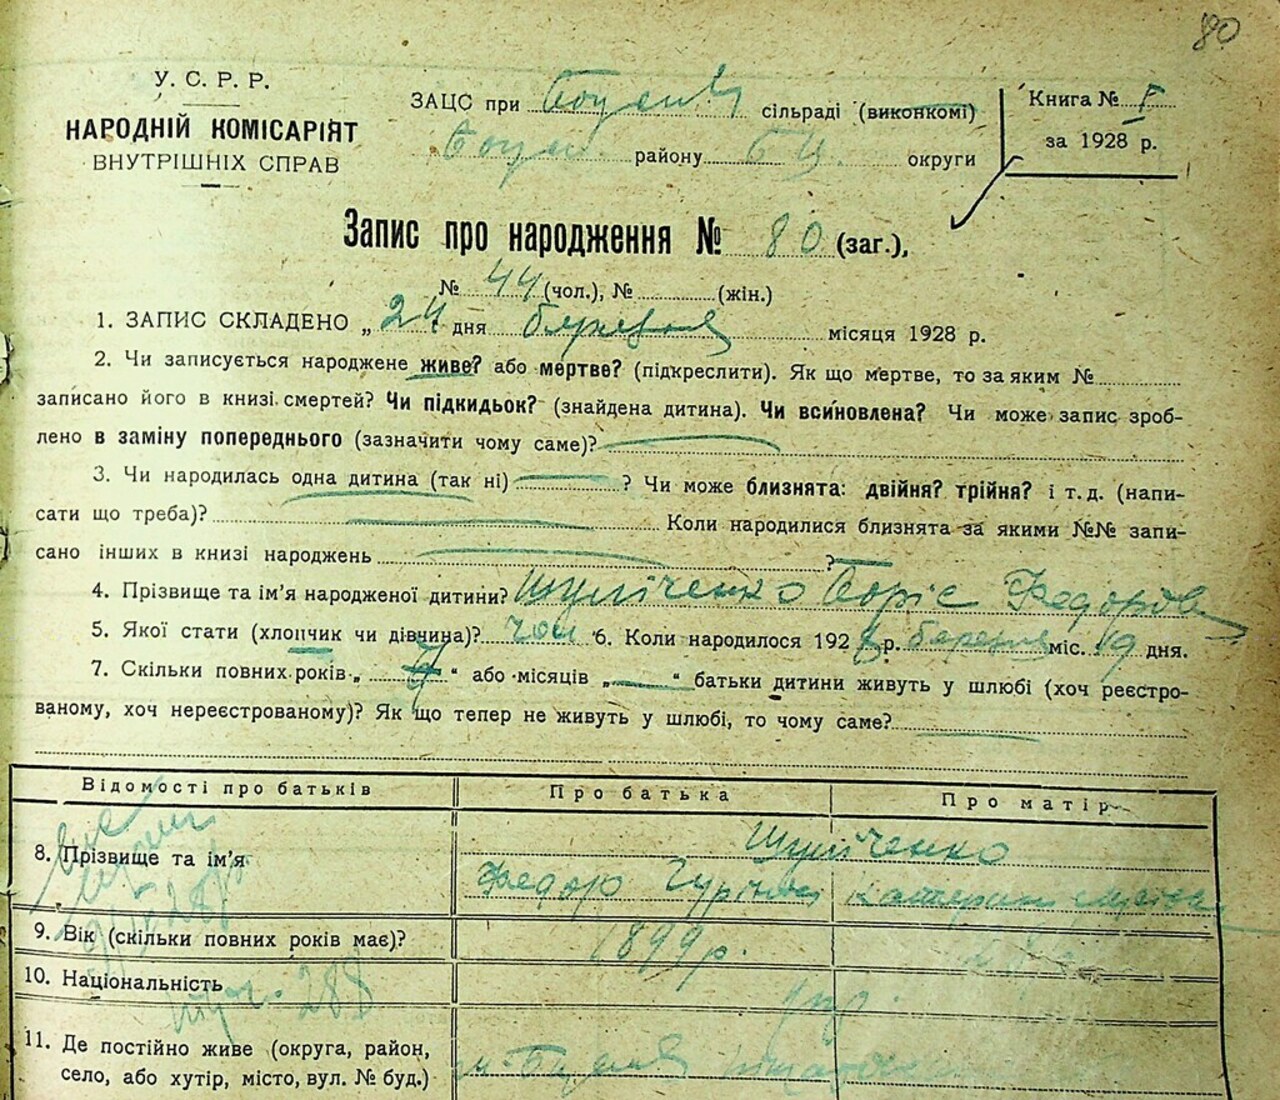 80
У. С. Р. Р.
НАРОДНІЙ КОМІСАРІЯТ
ВНУТРІШНІХ СПРАВ
ЗАЦС при сільраді (виконкомі)
району Б Ц. округи
Книга № I
за 1928 р.
Запис про народження № 80 (заг.),
№ 44 (чол.), № (жін.)
1. ЗАПИС СКЛАДЕНО „ 24 дня березня місяця 1928 р.
2. Чи записується народжене живе? або мертве? (підкреслити). Як що мертве, то за яким №
записано його в книзі смертей? Чи підкидьок? (знайдена дитина). Чи всиновлена? Чи може запис зроб-
лено в заміну попереднього (зазначити чому саме)?
3. Чи народилась одна дитина (так ні) ? Чи може близнята: двійня? трійня? і т. д. (напи-
сати що треба)? Коли народилися близнята за якими №№ запи-
сано інших в книзі народжень ?
4. Прізвище та ім'я народженої дитини? Шуліченко Борис Федоров
5. Якої стати (хлопчик чи дівчина)? чол 6. Коли народилося 1928 р. березня міс. 19 дня.
7. Скільки повних років „ “ або місяців „ “ батьки дитини живуть у шлюбі (хоч реєстро-
ваному, хоч нереєстрованому)? Як що тепер не живуть у шлюбі, то чому саме?
Відомості про батьків Про батька Про матір
8. Прізвище та ім'я Шуліченко
Федор Катерина
9. Вік (скільки повних років має)? 1899 р.
10. Національність укр.
288
11. Де постійно живе (округа, район,
село, або хутір, місто, вул. № буд.)